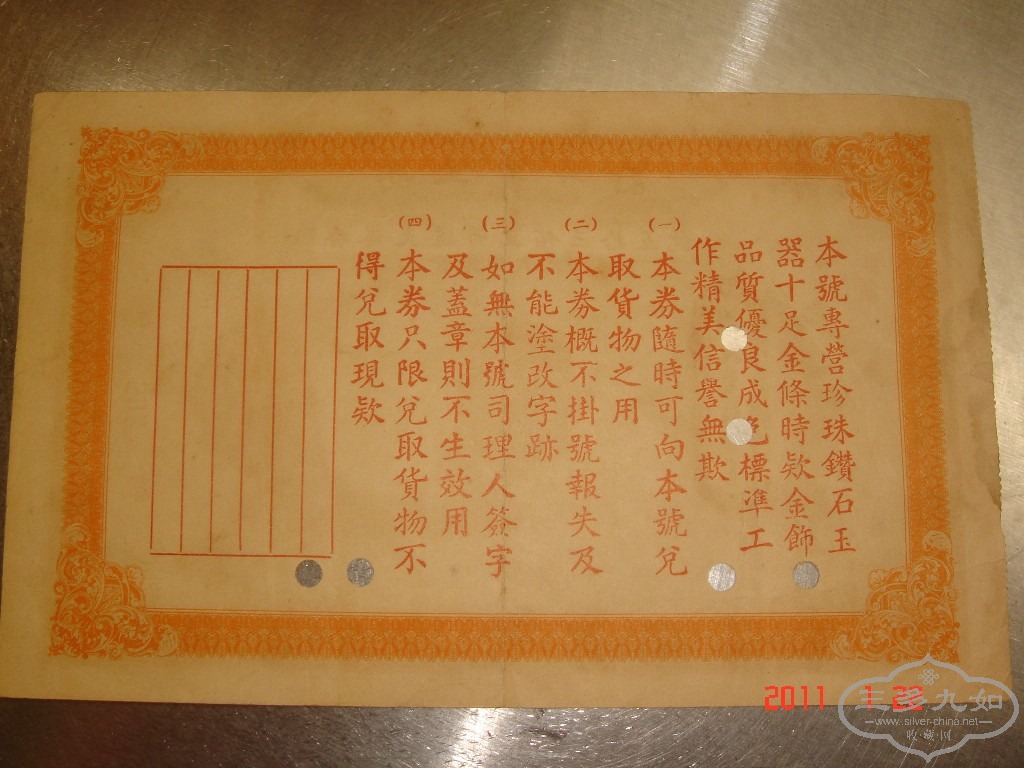 本號專營珍珠鑽石玉
器十足金條時欵金飾
品質優良成色標準工
作精美信譽無欺
(一)
本券隨時可向本號兌
取貨物之用
(二)
本券概不掛號報失及
不能塗改字跡
(三)
如無本號司理人簽字
及蓋章則不生效用
(四)
本券只限兌取貨物不
得兌取現欵
2011 1 22
三多九如
www.silver-china.net
收藏网